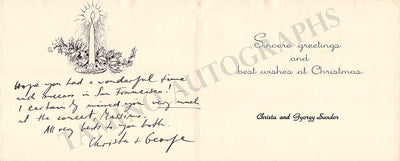 Hope you had a wonderful time
and success in San Francisco!
I certainly missed you very much
at the concert, Massimo.
All very best to you both.
Christa & George
Sincere greetings
and
best wishes at Christmas.
Christa and Gyorgy Sandor
TAMINO AUTOGRAPHS